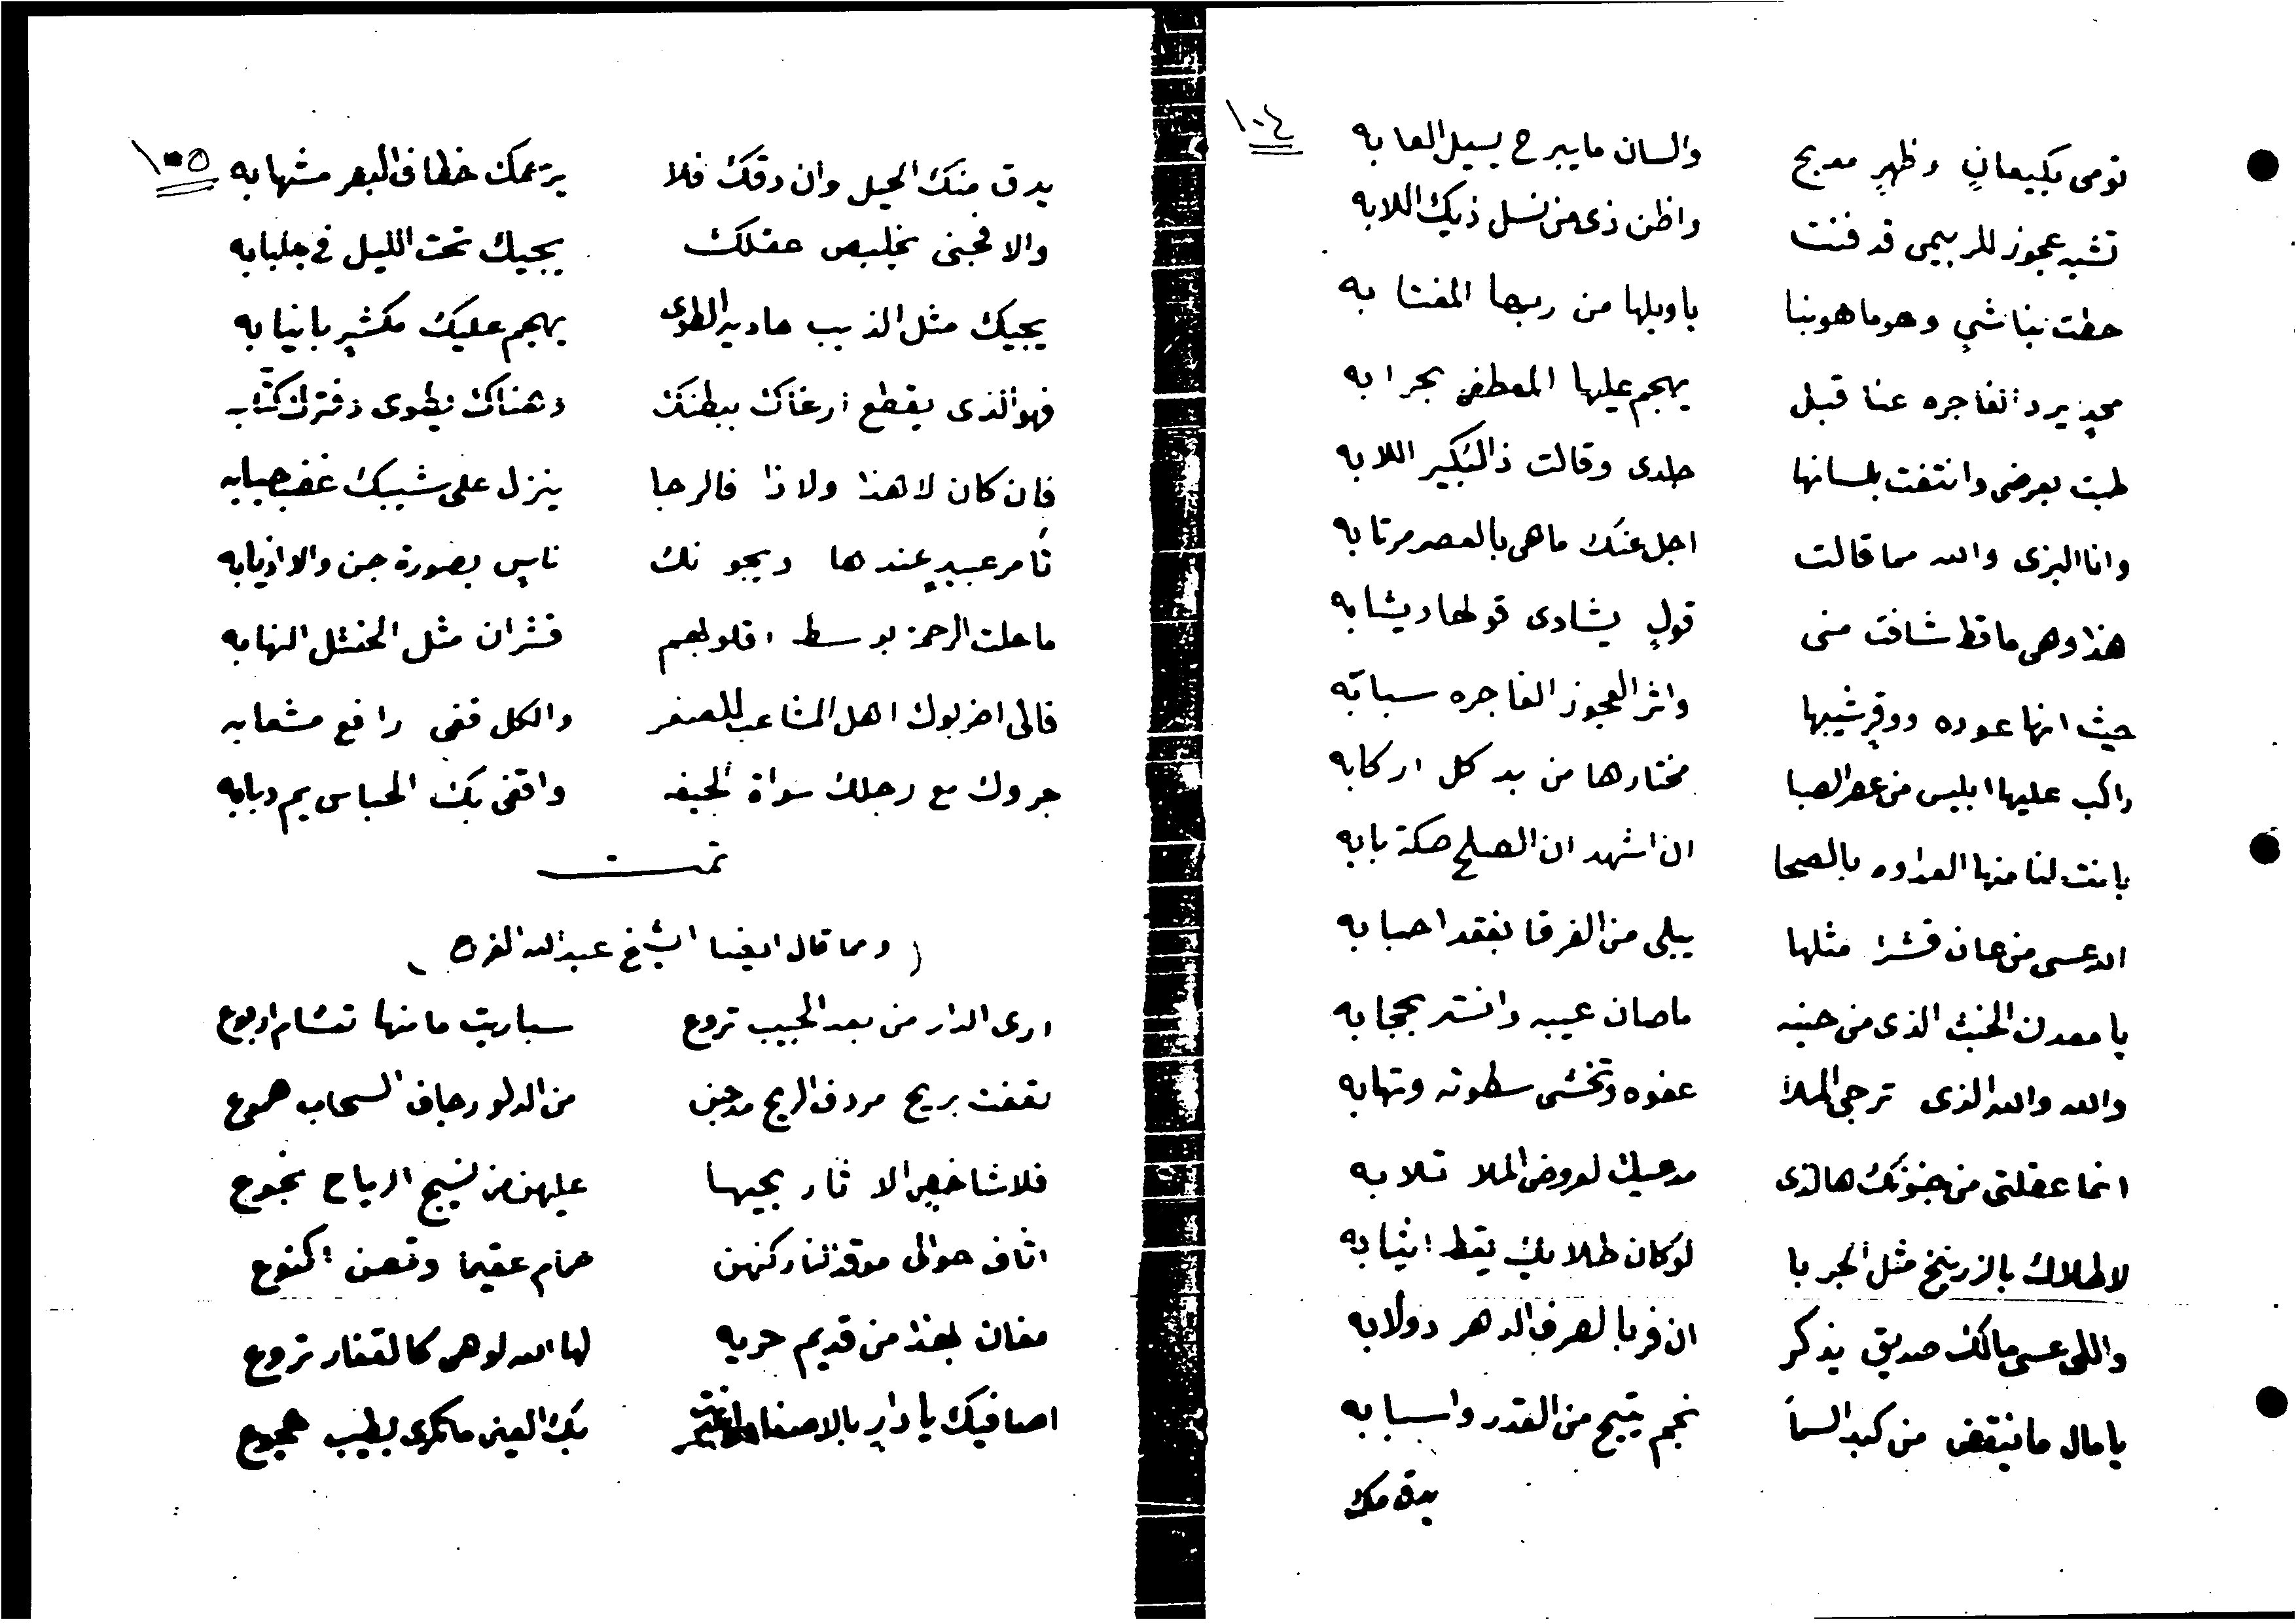 ١٠٤
تومى بكيعانٍ وظهرٍ مدبح والسان ما يبرح يسيل العابه
تشبه عجوز للربيمى قد فنت واظن ذى من نسل ذيك اللابه
حطت بنا شىٍ وهو ما هو بنا ياويلها من ربها المغتابه
يرد الفاجره عنا قبل يهجم عليها المعطفى بحرابه
طبت بعرضى وانتفت بلسانها جلدى وقالت ذا الكبير اللابه
وانا البرى والله مما قالت اجل عنك ماهى بالعصر مرتابه
هذا وهى ماقط شافت منى قولٍ يشادى قولها ويشابه
حيث انها عوده ووقر شيبها واثر العجوز الفاجره سبابه
راكب عليها ابليس من عصر الصبا مختارها من بد كل اركابه
بانت لنا منها العداوه بالصحا ان اشهد ان الصلح صكة بابه
الله عسى من عان قشرا مثلها يبلى من الفرقا بفقد احبابه
يا معدن الخبث الذى من حينه ماصان عيبه وانستر بحجابه
والله والله الذى ترجى الملا عفوه وتخشى سطوته وتهابه
انما عقلتى من هالذى مدعيك لعروض الملا تلابه
لاطلاك بالزرنيخ مثل الجربا لوكان طلابك يقط اثيابه
واللى عسى مالك صديق يذكر ان فر بالصرف الدهر دولابه
يا مال ما ينقض من كبد السما نجم يتيح من القدر واسبابه
يدق منك
١٠٥
يدق منك الحيل وان دقك فلا يرعمك خطاف البصر مشهابه
والا فجنى بخليص عقلك يجيك تحت الليل فى جلبابه
يجيك مثل الذيب هاديه الطوى يهجم عليك مكشرٍ بانيابه
فهو الذى يقطع ارغاك ببطنك وهناك يطوى دفترك كتابه
فان كان لا هذا ولا ذا فالرجا ينزل على شيبك غضب
تامر عبيدٍ عندها ويجونك ناسٍ بصورة جن والا اذيابه
ما حلت الرحمة بوسط اقلوبهم قشران مثل الحنتل النهابه
قالى اضربوك اهل المشاعب للصفر والكل قفى رافع مشعابه
جروك مع رجلك سواة الجيفه واقفى بك الحباس يم دبابه
تمت
( ومما قال ايضا الشيخ عبدالله الفرج )
ارى الدار من بعد الحبيب تروع سباريت ما منها تشام اربوع
تقفت بريح مردف الريح مدجن من الدلو رجاف السحاب هموع
فلا شاخصٍ الا ثار بجيها عليهن من نسيج الرياح نجوع
اثاف حوالى موقد النار كنهن حمام عقيما وقعن اكنوع
مغان لهند من قديم حريه لها الله لو هى كالقفار تروع
اصافيك يا دارٍ بالاصفا بك العين ماتكرى بطيب هجوع